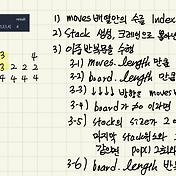 result
3 4
3 2 2 2
4 4 4 4
1) moves배열만의 수를 Index
2) Stack 생성,
3) 이중반복문을 수행
3-1) moves.length 만큼
3-2) board.length 만큼
3-3) ↓↓↓↓↓ 방향은 moves
3-4) board가 ≠0 이라면
3-5) stack의 size가 2 이
마지막 stack
같으면 pop() 2회
3-6) board.length 반복